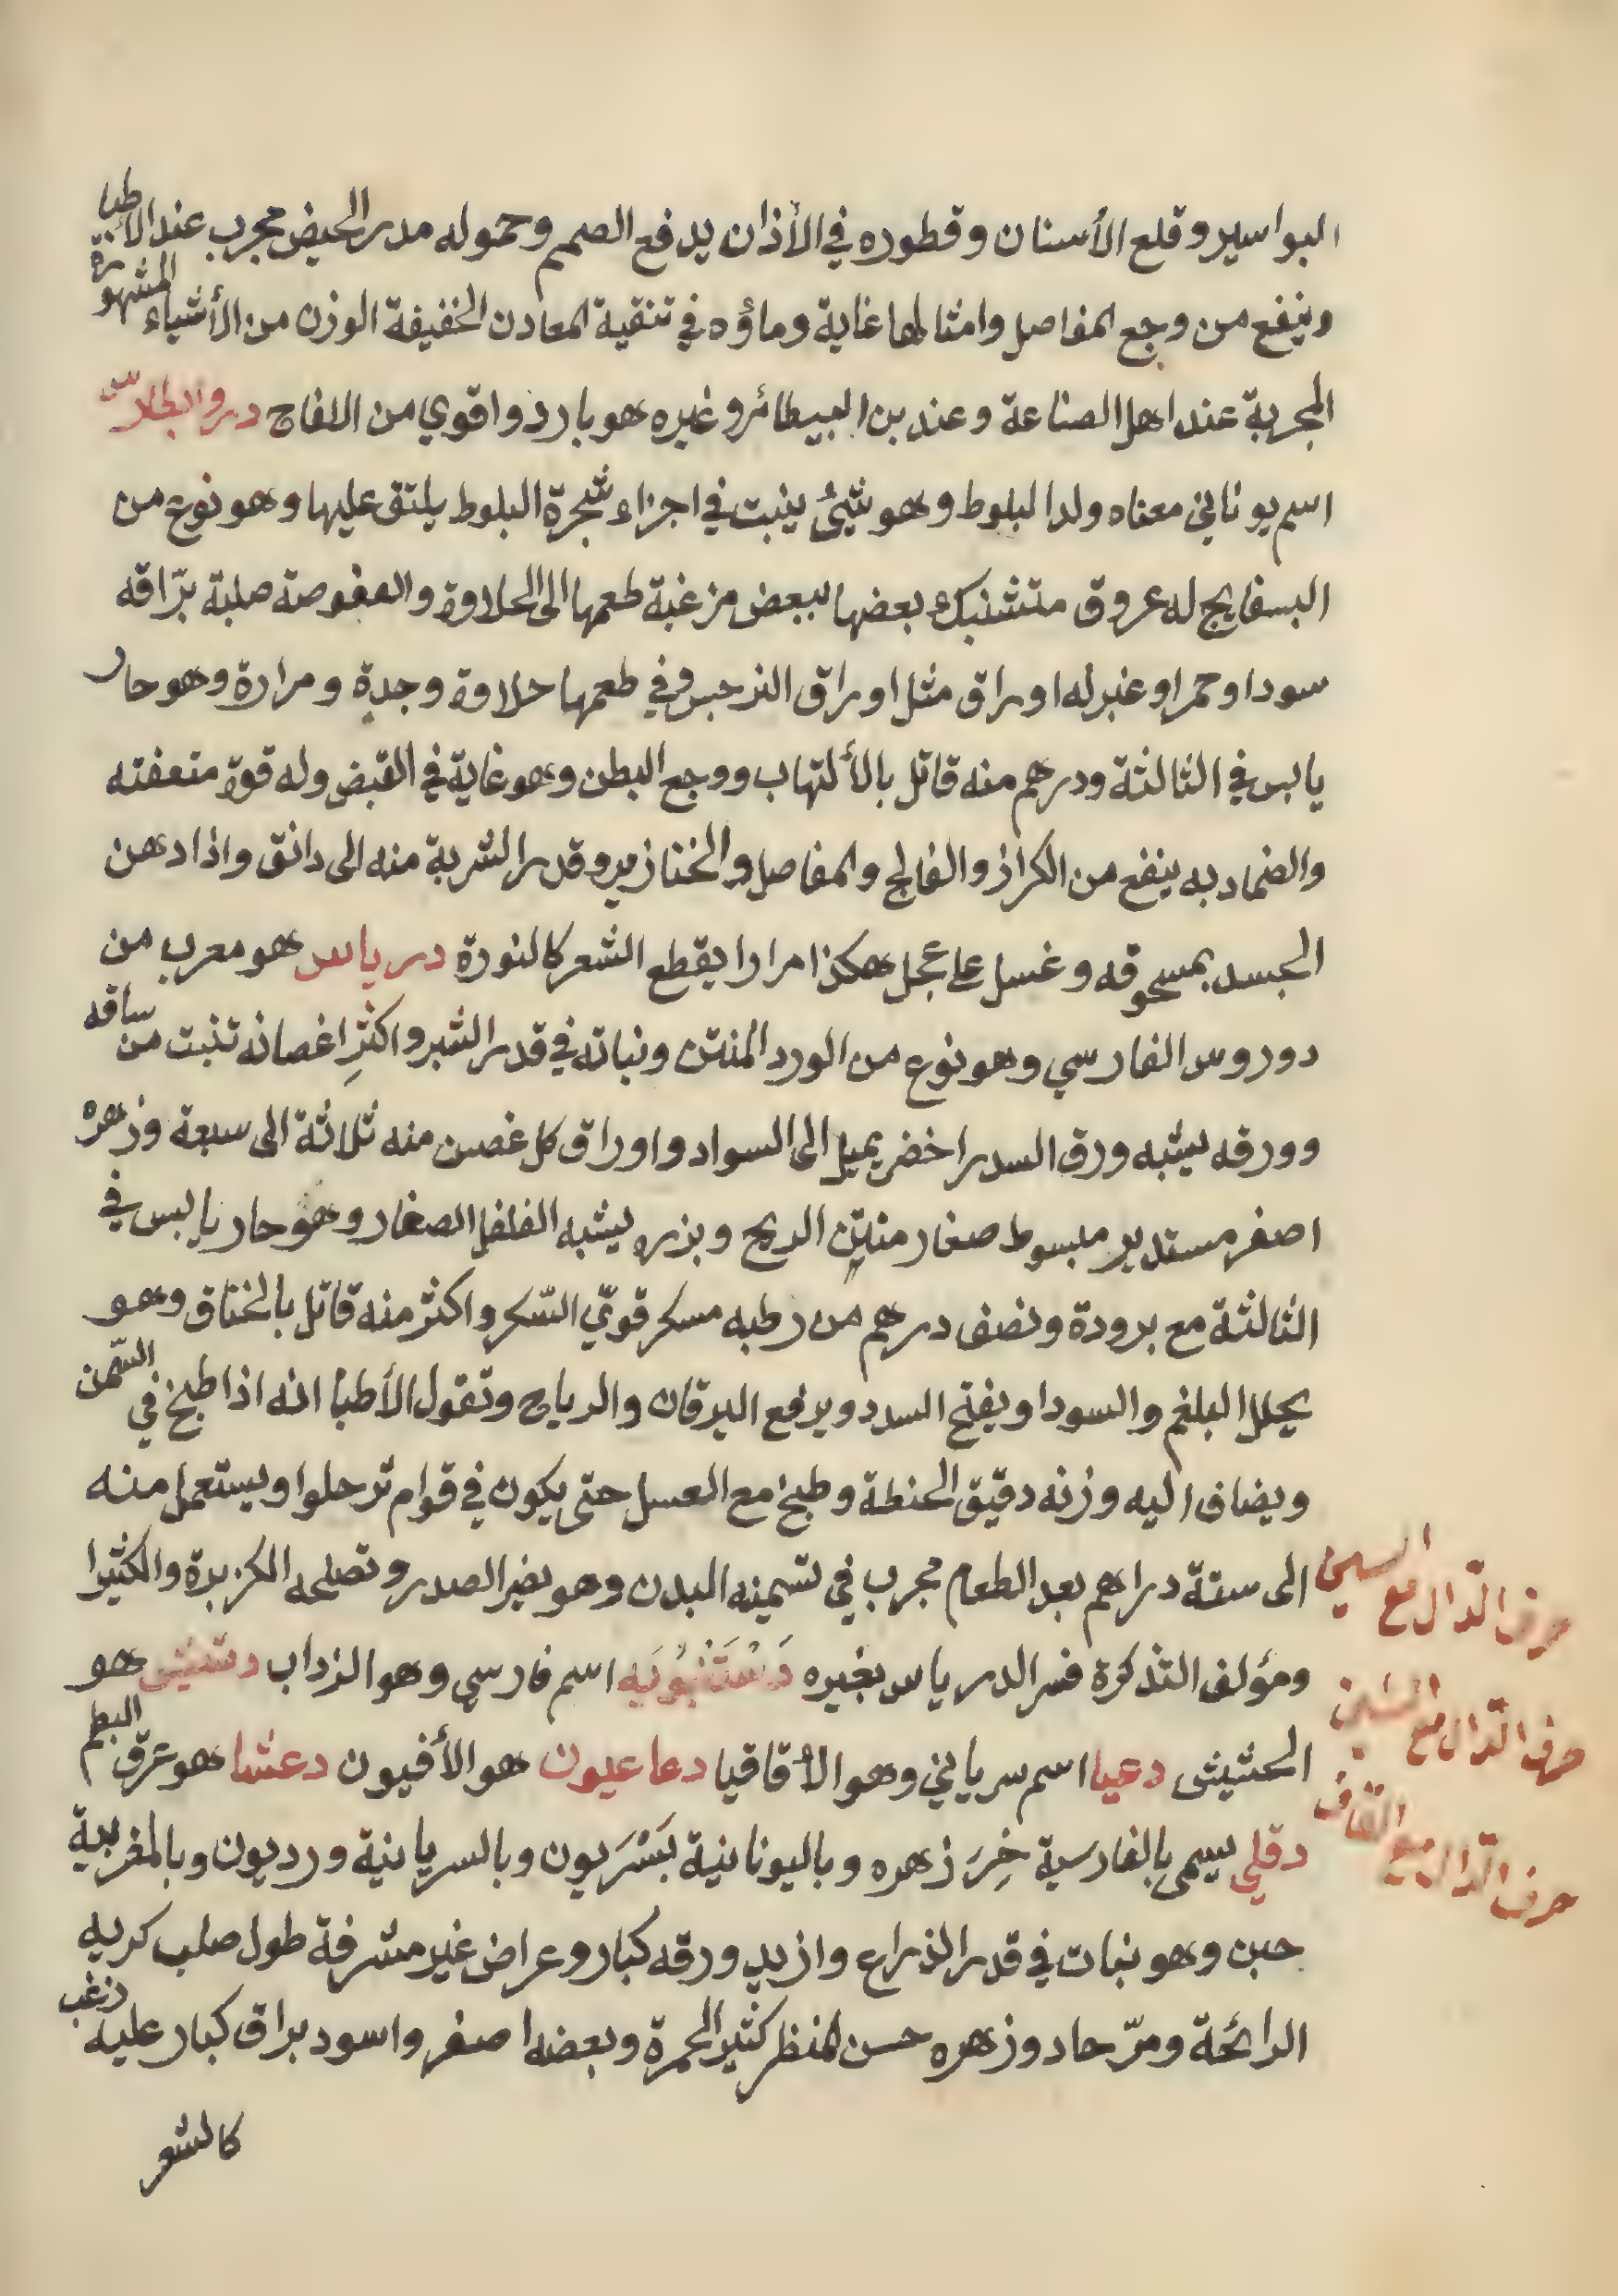 البواسير وقلع الأسنان وقطوره في الأذان يدفع الصمم وحموله مدر الحيض مجرب عند الأطبا
وينفع من وجع المفاصل وامثالها غاية وماؤه في تنقية المعادن الخفيفة الوزن من الأشياء المشهورة
المجربة عند اهل الصناعة وعند بن البيطائر وغيره هو بارد واقوي من اللفاح دروابطلاس
اسم يوناني معناه ولد البلوط وهو شيئ ينبت في اجزاء شجرة البلوط يلتق عليها وهو نوع من
البسفايج له عروق متشبك بعضها ببعض مزغبة طعمها الى الحلاوة والعفوصة صلبة برّاقه
سودا وحمرا وغبر له اوراق مثل اوراق النرجس وفي طعمها حلاوة وجدة ومرارة وهو حار
يابس في الثالثة ودرهم منه قاتل بالألتهاب ووجع البطن وهو غاية في القبض وله قوة متعفته
والضماد به ينفع من الكزاز والفالج والمفاصل والخنازير وقدر الشربة منه الى دانق واذا دهن
الجسد بمسحوقه وغسل على عجل هكذا مرارا يقطع الشعر كالنورة درياس هو معرب من
دوروس الفارسي وهو نوع من الورد المنتن ونباته في قدر الشبر واكثر اغصانه تنبت من ساقه
وورقه يشبه ورق السدر اخضر يميل الى السواد واوراق كل غصن منه ثلاثة الى سبعة وزهره
اصفر مستدير مبسوط صغار منتن الريح وبزره يشبه الفلفل الصغار وهو حار يابس في
الثالثة مع برودة ونصف درهم من رطبه مسكر قويّ السّكر واكثر منه قاتل بالخناق وهو
يحلل البلغم والسودا ويفتح السدد ويرفع اليرقان والرياح وتقول الأطبا انه اذا طبخ في السّمن
ويضاف اليه وزنه دقيق الحنطة وطبخ مع العسل حتى يكون في قوام تر حلوا ويستعمل منه
الى ستة دراهم بعد الطعام مجرب في تسمينه البدن وهو يضر الصدر وتصلحه الكزبرة والكثيرا
حرف الدّال مع السين
ومؤلف التذكرة فسر الدرياس بغيره دَسْتَنْبُوَيه اسم فارسي وهو الزداب دشيش هو
حرف الدّال مع الشين
الحشيش دعيا اسم سرياني وهو الأقاقيا دعا عيون هو الأفيون دعشا هو عرق البطم
دقلي يسمى بالفارسية خِرَزهره وباليونانية بَسْرَيون وبالسريانية ورديون وبالمغربية
حرف الدّال مع القاف
حبن وهو نبات في قدر الذراع وازيد ورقه كبار وعراض غير مشرفة طول صلب كريه
الرائحة ومرّ حاد وزهره حسن المنظر كثير الحمرة وبعضه اصفر واسود براق كبار عليه زغب
كالشعر